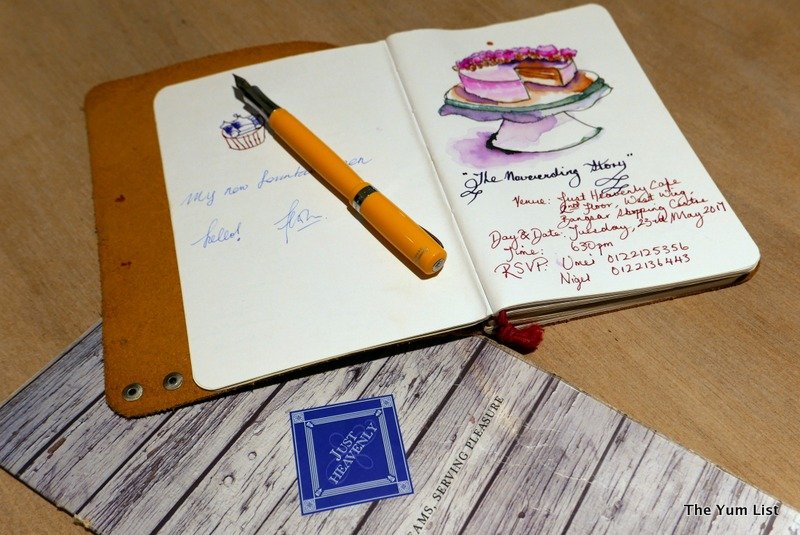 My new fountain pen
hello!
"The Neverending Story"
Venue: Just Heavenly Cafe
2nd Floor, West Wing,
Bangsar Shopping Centre
Day & Date: Tuesday, 23rd May 2017
Time: 630pm
RSVP: Umei 0122125356
Nigel 0122136443
JUST
HEAVENLY
AMS, SERVING PLEASURE
The Yum List